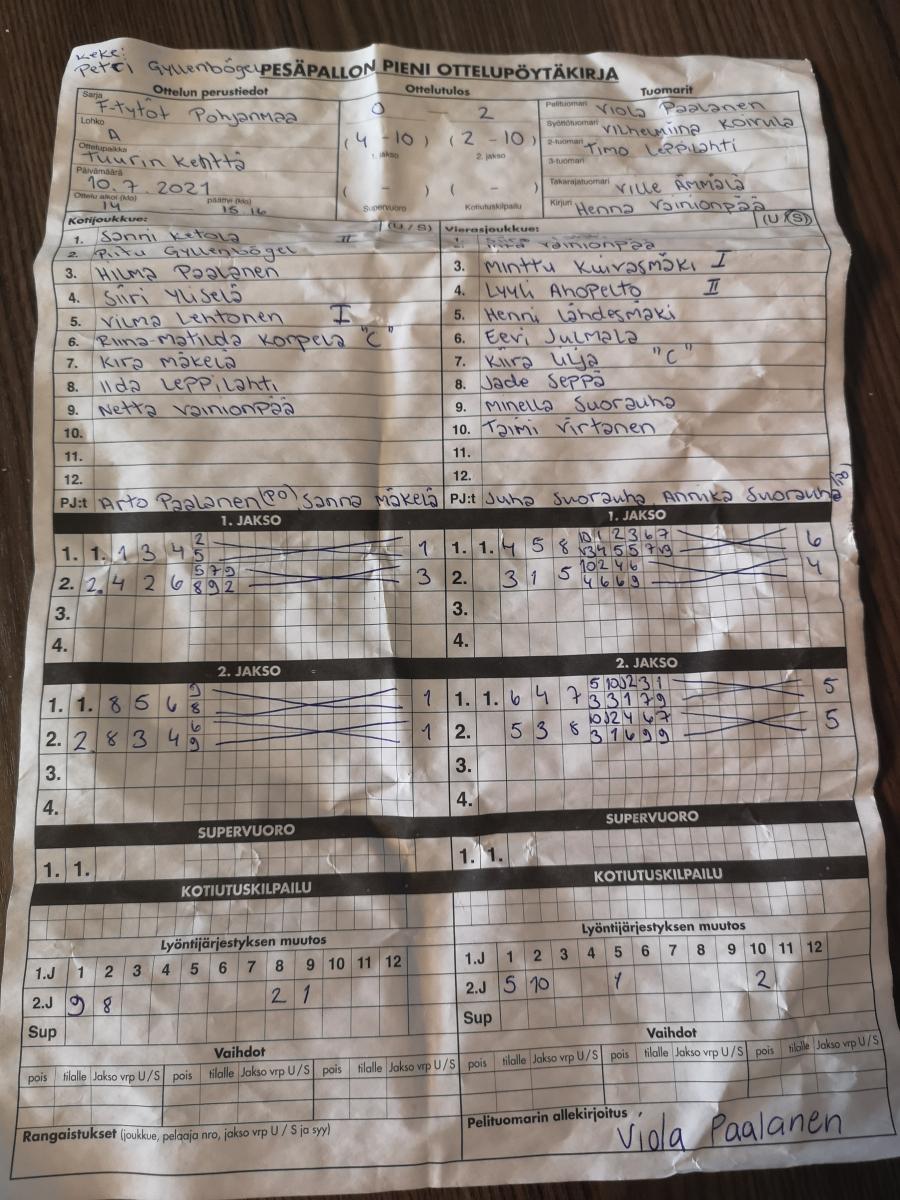 Keke:
Petri Gyllenbögel
PESÄPALLON PIENI OTTELUPÖYTÄKIRJA
Ottelun perustiedot
Sarja F-tytöt Pohjanmaa
Lohko A
Ottelupaikka Tuurin kenttä
Päivämäärä 10.7.2021
Ottelu alkoi (klo) 14 päättyi (klo) 15.16
Ottelutulos
0 2
(4 -10) (2 -10)
1. jakso 2. jakso
( - ) ( - )
Supervuoro Kotiutuskilpailu
Tuomarit
Pelituomari Viola Paalanen
Syöttötuomari Vilhelmiina Koivula
2-tuomari Timo Leppilahti
3-tuomari
Takarajatuomari Ville Ämmälä
Kirjuri Henna Vainionpää
Kotijoukkue: (U / S)
1. Sanni Ketola II
2. Piitu Gyllenbögel
3. Hilma Paalanen
4. Siiri Yliselä
5. Vilma Lehtonen I
6. Riina-Matilda Korpela "C"
7. Kira Mäkelä
8. Iida Leppilahti
9. Netta Vainionpää
10.
11.
12.
PJ:t Arto Paalanen (PO), Sanna Mäkelä
Vierasjoukkue: (U / S)
1. Vainionpää
3. Minttu Kuivasmäki I
4. Lyyli Ahopelto II
5. Henni Lähdesmäki
6. Eevi Julmala
7. Kiira Ulja "C"
8. Jade Seppä
9. Minella Suorauha
10. Taimi Virtanen
11.
12.
PJ:t Juha Suorauha, Annika Suorauha (PO)
1. JAKSO
1. 1. 1 3 4 2 5 1
2. 2. 4 2 6 5 7 9 8 9 2 3
3.
4.
1. JAKSO
1. 1. 4 5 8 10 1 2 3 6 7 3 4 5 5 7 9 6
2. 3 1 5 10 2 4 6 4 6 6 9 4
3.
4.
2. JAKSO
1. 1. 8 5 6 9 8 1
2. 2 8 3 4 6 9 1
3.
4.
2. JAKSO
1. 1. 6 4 7 5 10 2 3 1 3 3 1 7 9 5
2. 5 3 8 10 2 4 6 7 3 1 6 9 9 5
3.
4.
SUPERVUORO
1. 1.
SUPERVUORO
1. 1.
KOTIUTUSKILPAILU
KOTIUTUSKILPAILU
Lyöntijärjestyksen muutos
1.J 1 2 3 4 5 6 7 8 9 10 11 12
2.J 9 8 2 1
Sup
Lyöntijärjestyksen muutos
1.J 1 2 3 4 5 6 7 8 9 10 11 12
2.J 5 10 1 2
Sup
Vaihdot
pois tilalle Jakso vrp U / S pois tilalle Jakso vrp U / S pois tilalle Jakso vrp U / S
Vaihdot
pois tilalle Jakso vrp U / S pois tilalle Jakso vrp U / S pois tilalle Jakso vrp U / S
Rangaistukset (joukkue, pelaaja nro, jakso vrp U / S ja syy)
Pelituomarin allekirjoitus
Viola Paalanen